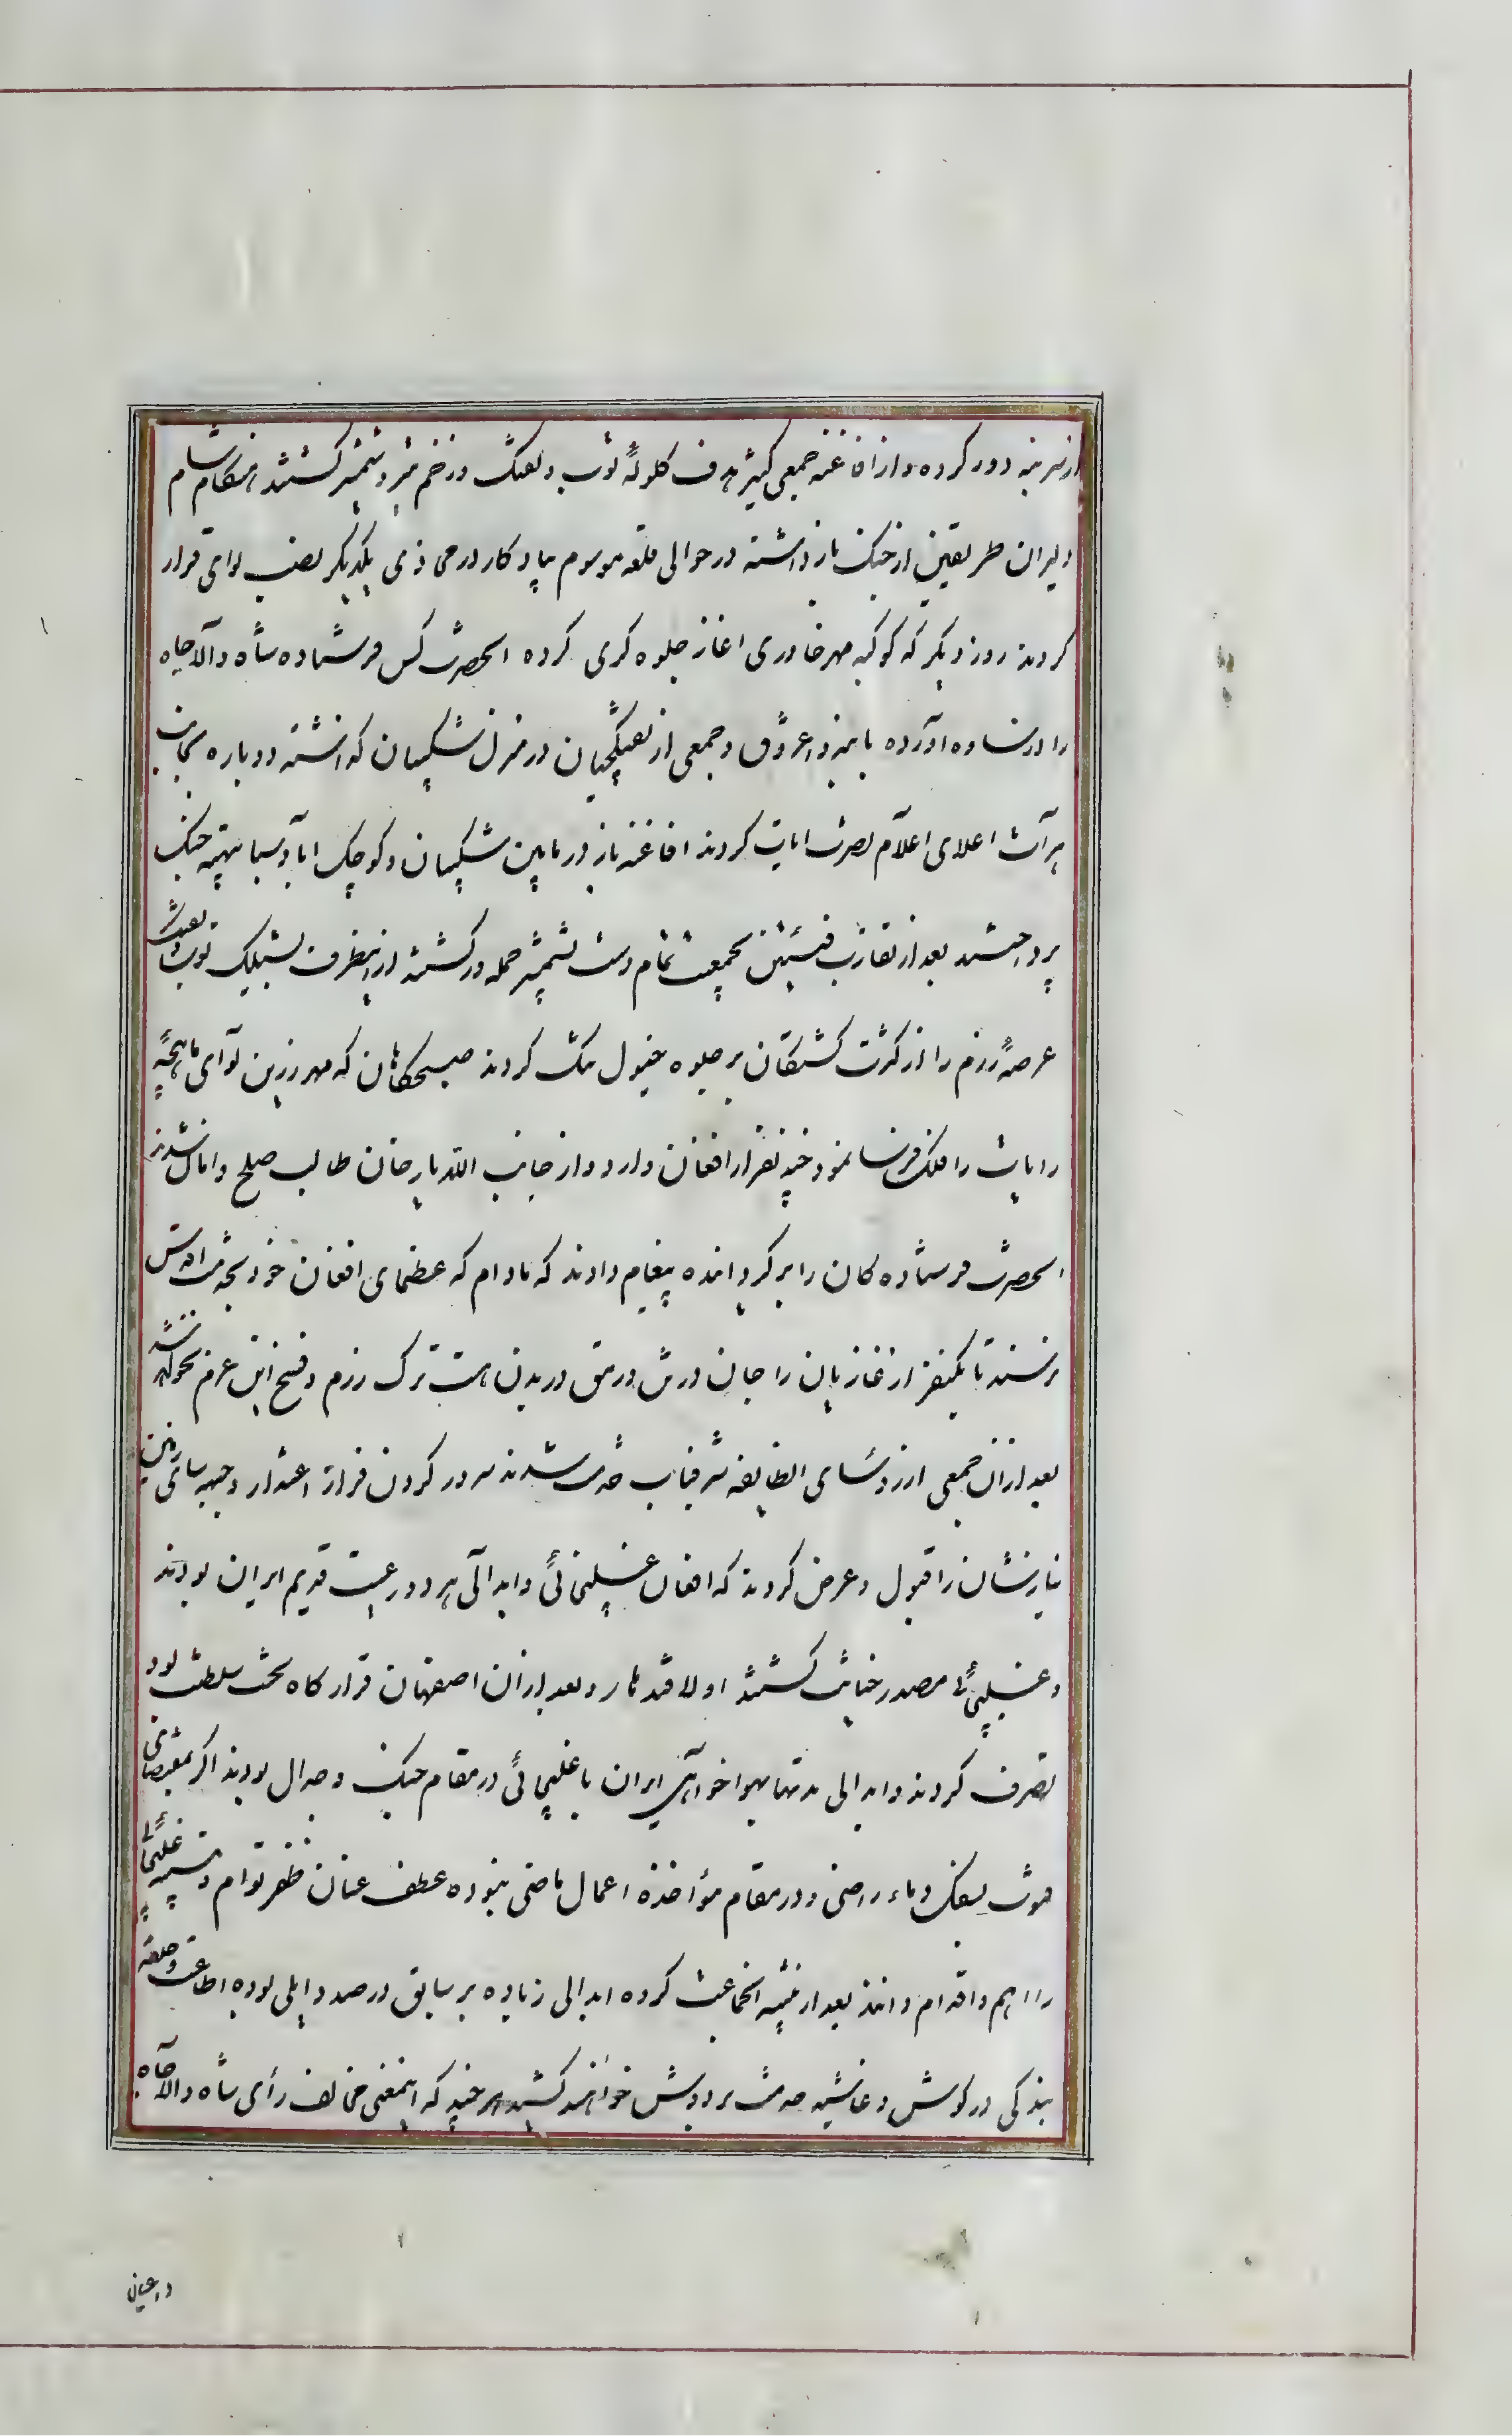 از سر بنه دور کرده و از افاغنه جمعی کثیر هدف کلولهٔ توپ و تفنک و زخم تیر و شمشیر کشتند هنکام شام
دلیران طریقین از جنک باز داشته در حوالی قلعه موسوم بباد کار در محاذی یکدیکر نصب لوای قرار
کردند روز دیکر که کوکبه مهر خاوری اغاز جلوه کری کرده انحضرت کس فرستاده شاه والاجاه
را در آورده با بنه و اغروق و جمعی از تفنکچیان در منزل شکیبان کذاشته دوباره بجانب
هرات اعلای اعلام نصرت ایات کردند افاغنه باز در مابین شکیبان و کوچک اباد بتهیه جنک
پرداختند بعد از تقارب فئتین بجمعیت تمام دست بشمشیر حمله ور کشتند از اینطرف بشلیک توپ و تفنک
عرصهٔ رزم را از کثرت کشتکان بر جلوه خیول تنک کردند صبحکاهان که مهر زرین لوای ماهچهٔ
رایات را فلک فرسا نمود چند نفر از افغان وارد و از جانب الله یار خان طالب صلح و امان شدند
انحضرت فرستاده کان را بر کردانده پیغام دادند که مادام که عظمای افغان خود بخدمت اقدس
نرسند تا یکنفر از غازیان را جان در تن و رمق در بدن است ترک رزم و فسخ این عزم نخواهد شد
بعد از ان جمعی از رؤسای انطایفه شرفیاب خدمت شدند سر در کردن فراز اعتذار و جبهه سای زمین
نیازشان را قبول و عرض کردند که افغان غلیجائی و ابدالی هر دو رعیت قدیم ایران بودند
و غلیجائی مصدر خیانت کشتند اولا قندهار و بعد از ان اصفهان قرار کاه تخت سلطنت بود
تصرف کردند و ابدالی مدتها بهوا خواهی ایران با غلیجائی در مقام جنک و جدال بودند اکر بمقتضای
مروت بسفک دماء راضی و در مقام مؤاخذه اعمال ماضی نبوده عطف عنان ظفر توام و تنبیه غلیجائی
را اهم و اقدام دانند بعد از تنبیه انجماعت کرده ابدالی زیاده بر سابق در صدد ایلی بوده اطاعت و حلقه
بندکی در کوش و غاشیه خدمت بر دوش خواهند کشید هر چند که اینمعنی مخالف رأی شاه والاجاه
و اعیان